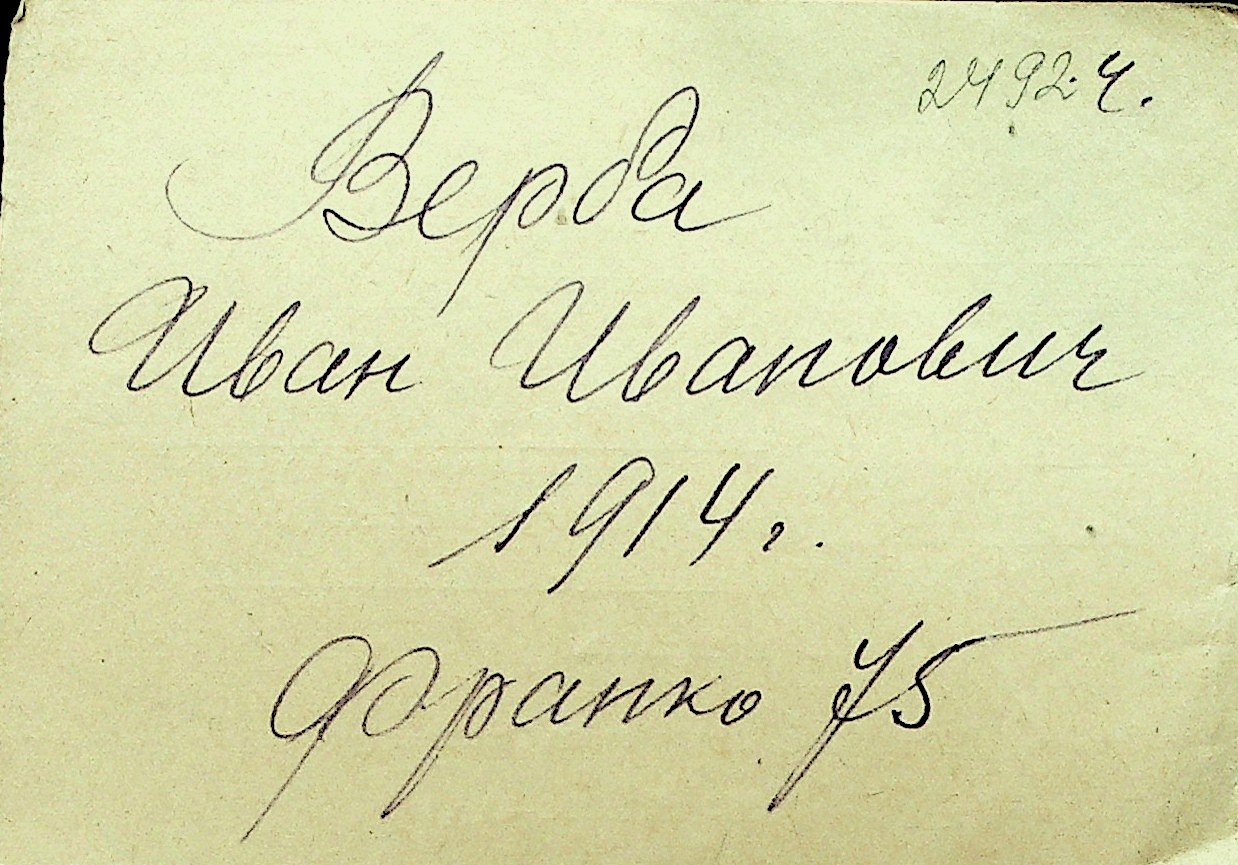 2492 ч.
Верба
Иван Иванович
1914 г.
Франко 75